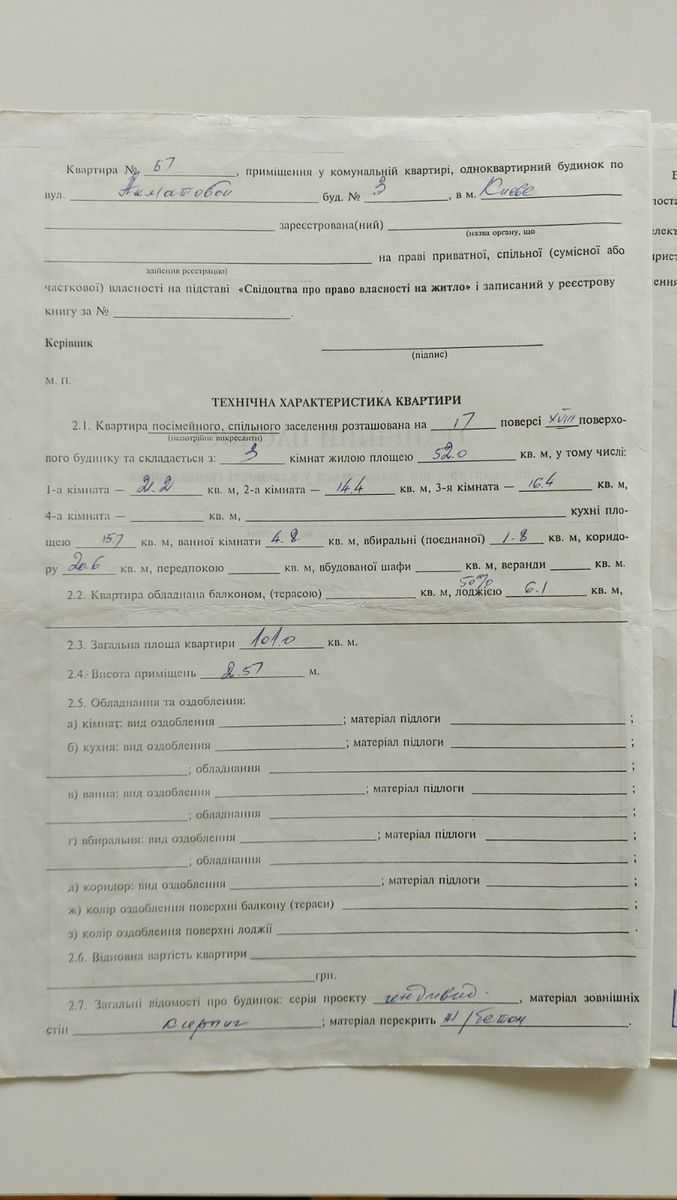 Квартира № 57, приміщення у комунальній квартирі, одноквартирний будинок по
вул. Ахматовой буд. № 3, в м. Киеве
зареєстрована(ний)
(назва органу, що
на праві приватної, спільної (сумісної або
здійснив реєстрацію)
часткової) власності на підставі «Свідоцтва про право власності на житло» і записаний у реєстрову
книгу за №
Керівник
(підпис)
М. П.
ТЕХНІЧНА ХАРАКТЕРИСТИКА КВАРТИРИ
2.1. Квартира посімейного, спільного заселення розташована на 17 поверсі XVIII поверхо-
(непотрібне викреслити)
вого будинку та складається з: 3 кімнат жилою площею 52.0 кв. м, у тому числі:
1-а кімната — 21.2 кв. м, 2-а кімната — 14.4 кв. м, 3-я кімната — 16.4 кв. м,
4-а кімната — кв. м, кухні пло-
щею 15.1 кв. м, ванної кімнати 4.8 кв. м, вбиральні (поєднаної) 1.8 кв. м, коридо-
ру 20.6 кв. м, передпокою кв. м, вбудованої шафи кв. м, веранди кв. м.
50%
2.2. Квартира обладнана балконом, (терасою) кв. м, лоджією 6.1 кв. м,
2.3. Загальна площа квартири 101.0 кв. м.
2.4. Висота приміщень 2.51 м.
2.5. Обладнання та оздоблення:
а) кімнат: вид оздоблення ; матеріал підлоги ;
б) кухня: вид оздоблення ; матеріал підлоги ;
; обладнання ;
в) ванна: вид оздоблення ; матеріал підлоги ;
; обладнання ;
г) вбиральня: вид оздоблення ; матеріал підлоги ;
; обладнання ;
д) коридор: вид оздоблення ; матеріал підлоги ;
ж) колір оздоблення поверхні балкону (тераси) ;
з) колір оздоблення поверхні лоджії .
2.6. Відновна вартість квартири
грн.
2.7. Загальні відомості про будинок: серія проекту индивид. , матеріал зовнішніх
стін кирпич ; матеріал перекрить ж/бетон .